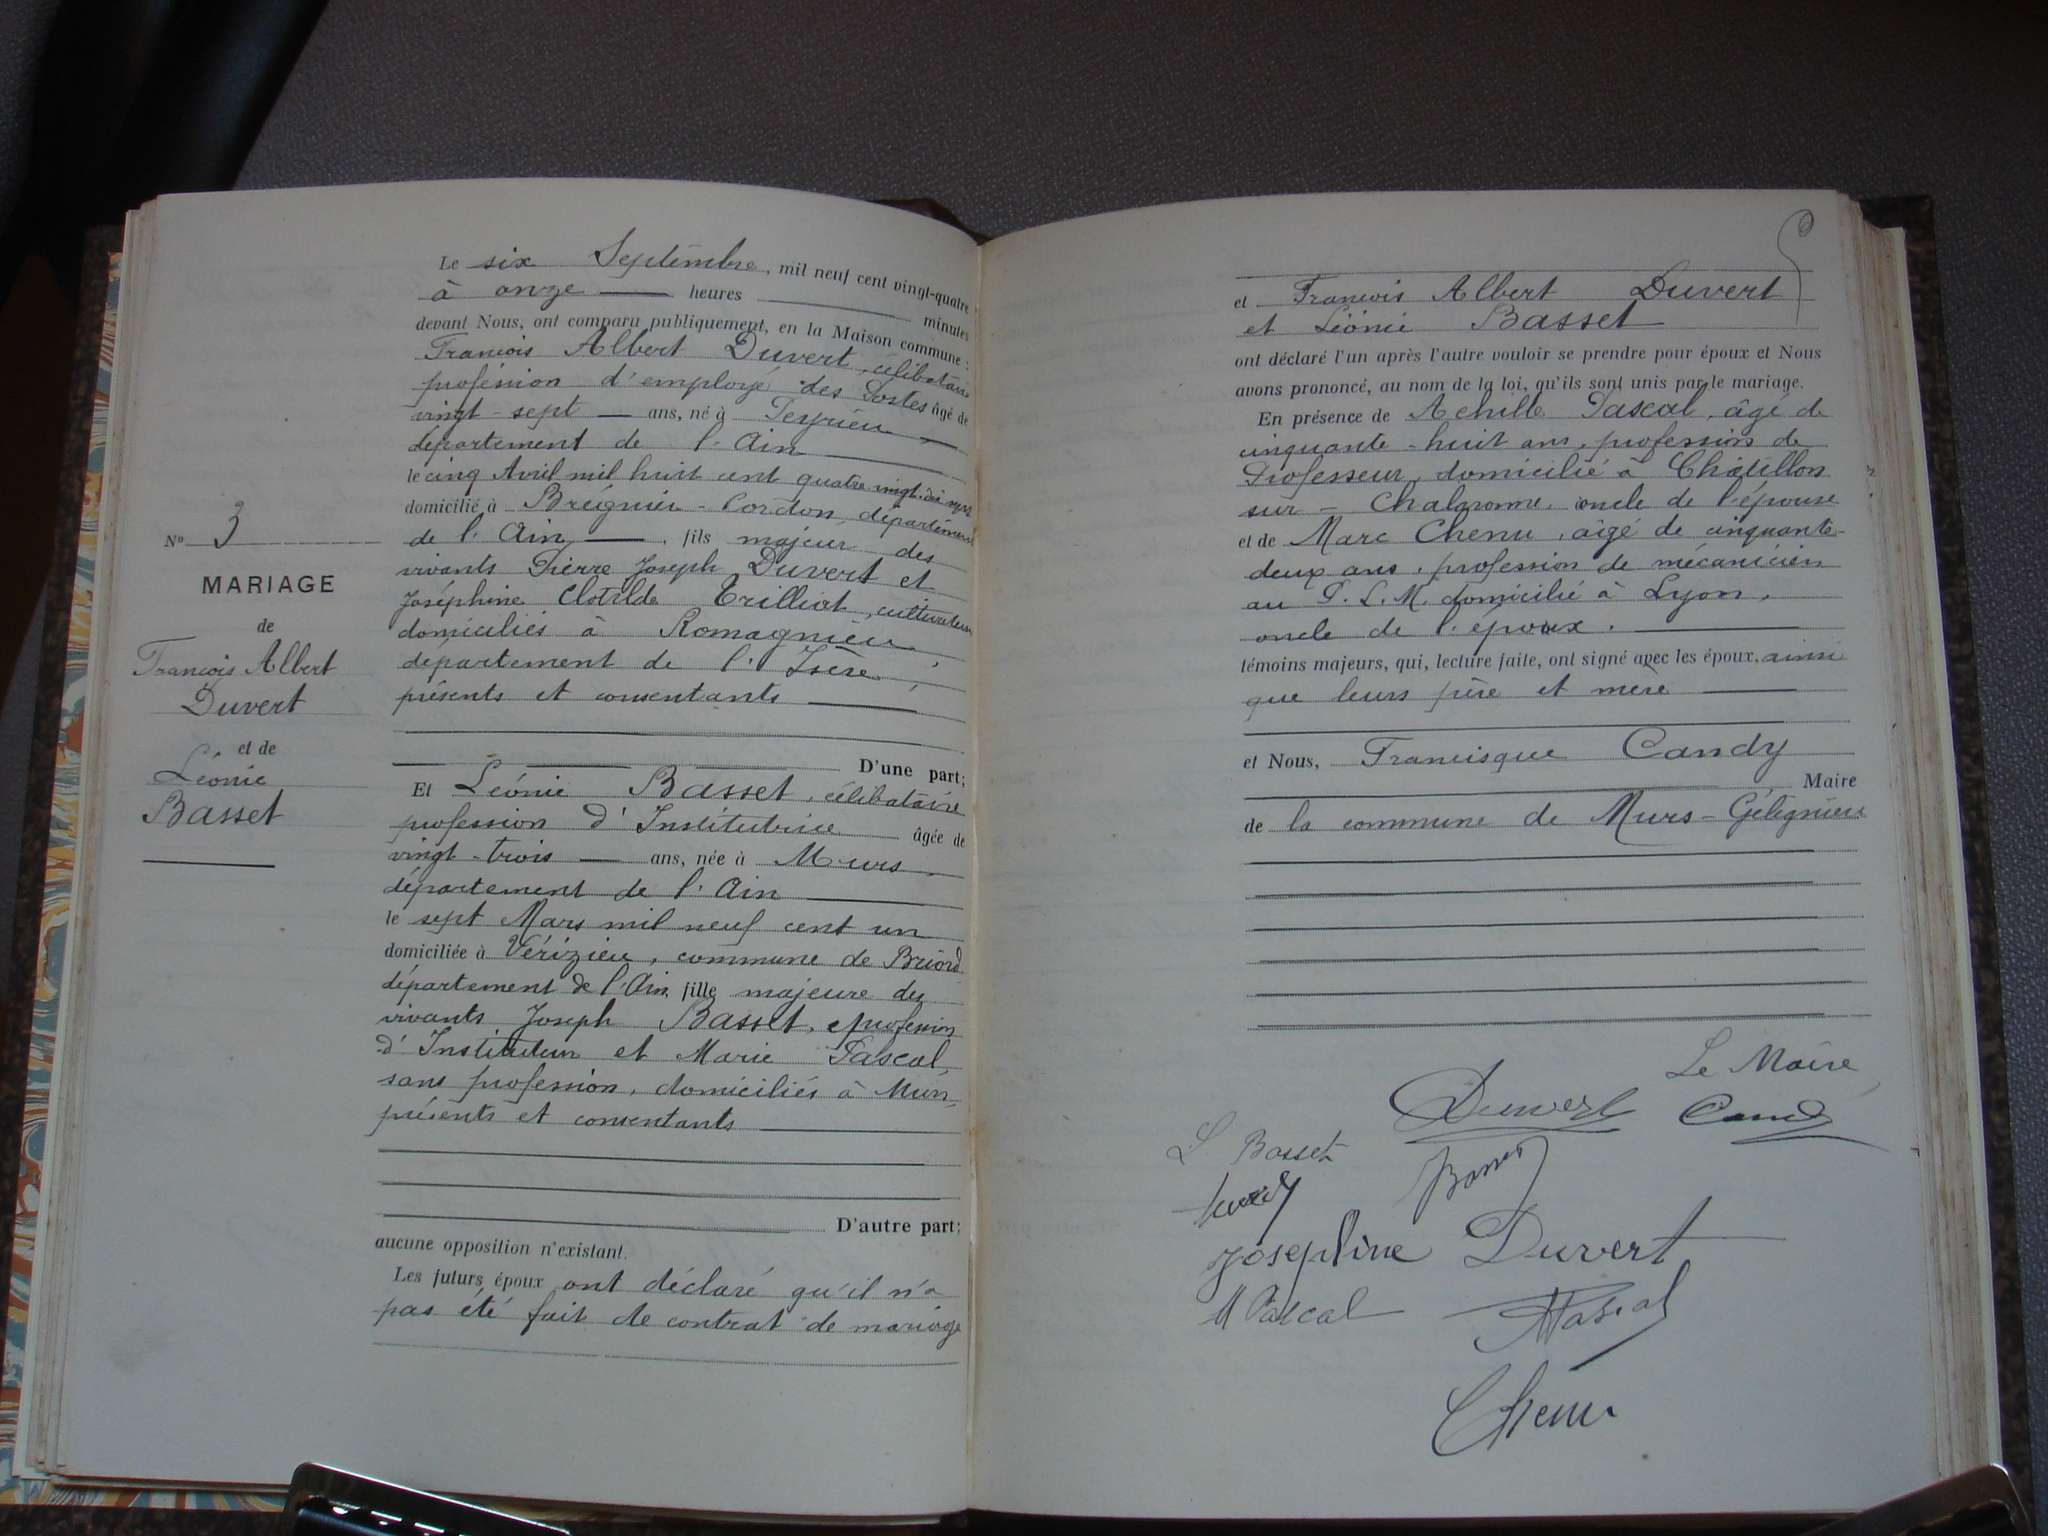 N° 3
MARIAGE
de
François Albert
Duvert
et de
Léonie
Basset
Le six Septembre, mil neuf cent vingt-quatre
à onze heures minutes
devant Nous, ont comparu publiquement, en la Maison commune :
François Albert Duvert, célibataire
profession d'employé des Postes âgé de
vingt-sept ans, né à Peyrieu
département de l'Ain
le cinq Avril mil huit cent quatre vingt dix sept
domicilié à Brégnier-Cordon, département
de l'Ain, fils majeur des
vivants Pierre Joseph Duvert et
Joséphine Clotilde Trilliat, cultivateurs
domiciliés à Romagnieu,
département de l'Isère,
présents et consentants
D'une part;
Et Léonie Basset, célibataire
profession d'Institutrice âgée de
vingt-trois ans, née à Murs,
département de l'Ain
le sept Mars mil neuf cent un
domiciliée à Vérizieu, commune de Briord
département de l'Ain, fille majeure des
vivants Joseph Basset, profession
d'Instituteur et Marie Pascal,
sans profession, domiciliés à Murs,
présents et consentants
D'autre part;
aucune opposition n'existant.
Les futurs époux ont déclaré qu'il n'a
pas été fait de contrat de mariage
et François Albert Duvert
et Léonie Basset
ont déclaré l'un après l'autre vouloir se prendre pour époux et Nous
avons prononcé, au nom de la loi, qu'ils sont unis par le mariage.
En présence de Achille Pascal, âgé de
cinquante-huit ans, profession de
Professeur, domicilié à Châtillon
sur-Chalaronne, oncle de l'épouse
et de Marc Chenu, âgé de cinquante-
deux ans, profession de mécanicien
au P.L.M. domicilié à Lyon,
oncle de l'époux.
témoins majeurs, qui, lecture faite, ont signé avec les époux, ainsi
que leurs père et mère
et Nous, Francisque Candy
Maire
de la commune de Murs-Gélignieux
Le Maire,
Duvert Candy
L Basset
Basset
Joséphine Duvert
M Pascal A Pascal
Chenu